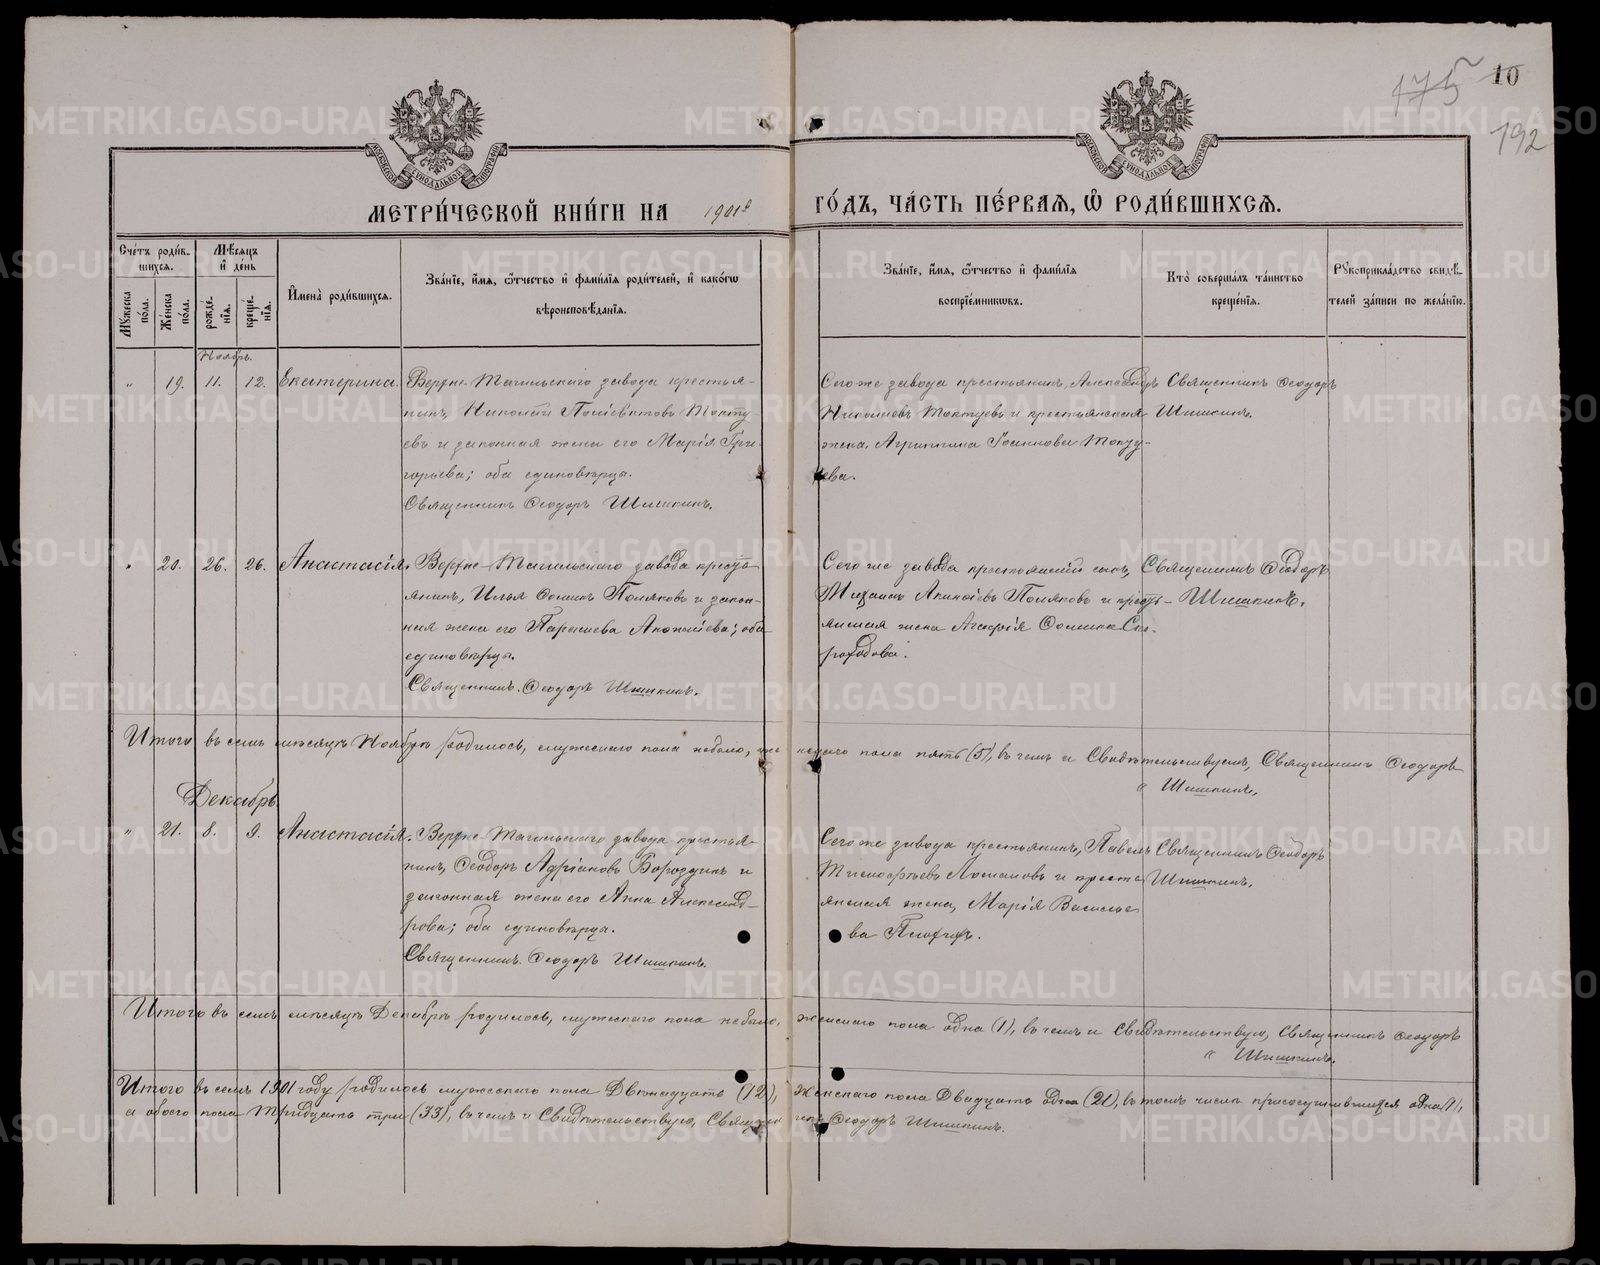 175 10
192
МОСКОВСКОЙ СѴНОДАЛЬНОЙ ТИПОГРАФІИ
МОСКОВСКОЙ СѴНОДАЛЬНОЙ ТИПОГРАФІИ
МЕТРИ́ЧЕСКОЙ КНИ́ГИ НА 1901й ГО́ДЪ, ЧА́СТЬ ПЕ́РВАЯ, Ѡ РОДИ́ВШИХСЯ.
Сче́тъ роди́в-
шихся.
Мѣ́сяцъ
и҆ де́нь
Мꙋ́жеска
по́ла.
Же́нска
по́ла.
рожде́-
нїя.
креще́-
нїя.
И҆мена̀ роди́вшихся.
Зва́нїе, и҆́мя, ѻ҆́тчество и҆ фами́лїя роди́телей, и҆ како́гѡ
вѣроисповѣ́данїя.
Зва́нїе, и҆́мя, ѻ҆́тчество и҆ фами́лїя
воспрїе́мникѡвъ.
Кто̀ соверша́лъ та́инство
креще́нїя.
Рꙋкоприкла́дство свидѣ́-
телей за́писи по жела́нїю.
Ноябрь.
„ 19. 11. 12. Екатерина.
Верхне-Тагильскаго завода крестья-
нинъ, Николай Полiевктовъ Токту-
евъ и законная жена его Марія Гри-
горьева; оба единовѣрцы.
Священникъ Ѳеодоръ Шишкинъ.
Сего же завода крестьянинъ, Александръ
Николаевъ Токтуевъ и крестьянская
жена, Агриппина Іоаннова Токту-
ева.
Священникъ Ѳеодоръ
Шишкинъ.
„ 20. 26. 26. Анастасія.
Верхне-Тагильскаго завода кресть-
янинъ, Илья Ѳоминъ Поляковъ и закон-
ная жена его оба
единовѣрцы.
Священникъ Ѳеодоръ Шишкинъ.
Сего же завода крестьянскій сынъ,
Михаилъ Поляковъ и кресть-
янская жена Агафія Ѳомина Ско-
родова.
Священникъ Ѳеодоръ
Шишкинъ.
Итого въ семъ мѣсяцѣ Ноябрѣ родилось, мужескаго пола небыло, женскаго пола пять (5), въ чемъ и Свидѣтельствуемъ, Священникъ Ѳеодоръ
„ Шишкинъ.
Декабрь.
„ 21. 8. 9. Анастасія.
Верхне-Тагильскаго завода крестья-
нинъ, Ѳеодоръ Адріановъ Бороздинъ и
законная жена его Анна Александ-
рова; оба единовѣрца.
Священникъ Ѳеодоръ Шишкинъ.
Сего же завода крестьянинъ, Павелъ
Тимофѣевъ и кресть
янская жена, Марія Василье
ва
Священникъ Ѳеодоръ
Шишкинъ.
Итого въ семъ мѣсяцѣ Декабрѣ родилось, мужескаго пола небыло, женскаго пола одна (1), въ чемъ и Свидѣтельствую, Священникъ Ѳеодоръ
„ Шишкинъ.
Итого въ семъ 1901 году родилось мужескаго пола Двѣнадцать (12), Женскаго пола Двадцать одна (21), въ томъ числѣ присоединившихся одна (1),
а обоего пола Тридцать три (33), въ чемъ и Свидѣтельствую, Священникъ Ѳеодоръ Шишкинъ.
METRIKI.GASO-URAL.RU